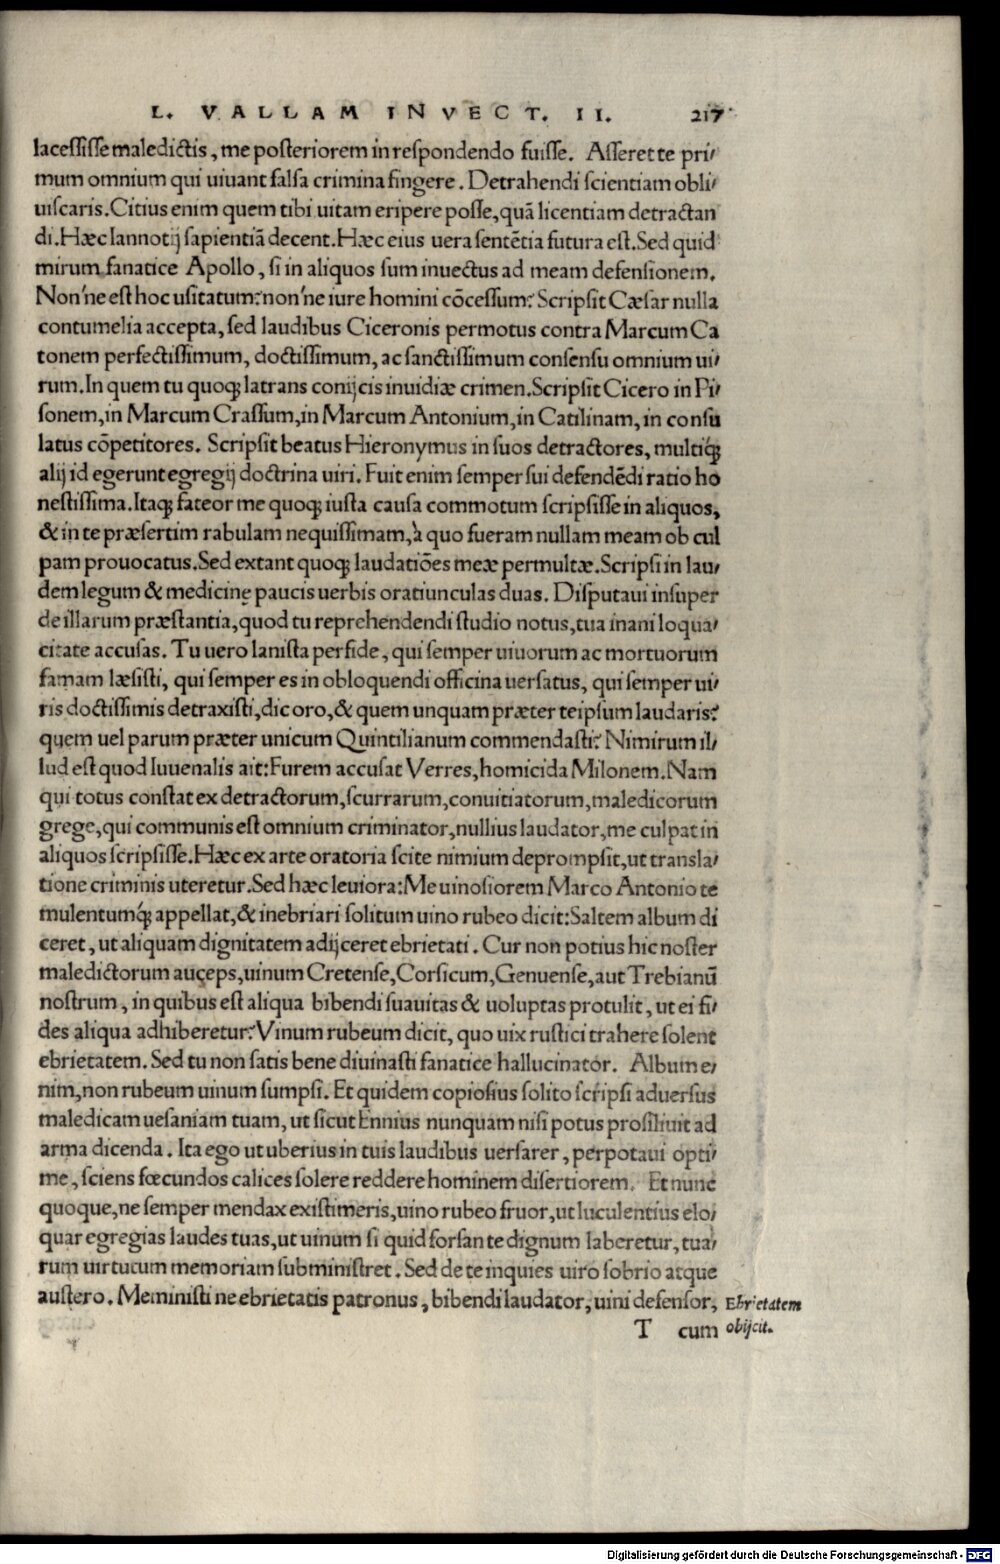 L. VALLAM INVECT. II. 217
lacessisse maledictis, me posteriorem in respondendo fuisse. Asseret te pri/
mum omnium qui uiuant falsa crimina fingere. Detrahendi scientiam obli/
uiscaris. Citius enim quem tibi uitam eripere posse, quã licentiam detractan
di. Hæc Iannotij sapientiã decent. Hæc eius uera sentẽtia futura est. Sed quid
mirum fanatice Apollo, si in aliquos sum inuectus ad meam defensionem.
Non'ne est hoc usitatum? non'ne iure homini cõcessum? Scripsit Cæsar nulla
contumelia accepta, sed laudibus Ciceronis permotus contra Marcum Ca
tonem perfectissimum, doctissimum, ac sanctissimum consensu omnium ui/
rum. In quem tu quoq; latrans conijcis inuidiæ crimen. Scripsit Cicero in Pi/
sonem, in Marcum Crassum, in Marcum Antonium, in Catilinam, in consu
latus cõpetitores. Scripsit beatus Hieronymus in suos detractores, multiq́;
alij id egerunt egregij doctrina uiri. Fuit enim semper sui defendẽdi ratio ho
nestissima. Itaq; fateor me quoq; iusta causa commotum scripsisse in aliquos,
& in te præsertim rabulam nequissimam, à quo fueram nullam meam ob cul
pam prouocatus. Sed extant quoq; laudatiões meæ permultæ. Scripsi in lau/
dem legum & medicinę paucis uerbis oratiunculas duas. Disputaui insuper
de illarum præstantia, quod tu reprehendendi studio notus, tua inani loqua/
citate accusas. Tu uero lanista perfide, qui semper uiuorum ac mortuorum
famam læsisti, qui semper es in obloquendi officina uersatus, qui semper ui/
ris doctissimis detraxisti, dic oro, & quem unquam præter teipsum laudaris?
quem uel parum præter unicum Quintilianum commendasti? Nimirum il/
lud est quod Iuuenalis ait: Furem accusat Verres, homicida Milonem. Nam
qui totus constat ex detractorum, scurrarum, conuitiatorum, maledicorum
grege, qui communis est omnium criminator, nullius laudator, me culpat in
aliquos scripsisse. Hæc ex arte oratoria scite nimium deprompsit, ut transla/
tione criminis uteretur. Sed hæc leuiora: Me uinosiorem Marco Antonio te
mulentumq́; appellat, & inebriari solitum uino rubeo dicit: Saltem album di
ceret, ut aliquam dignitatem adijceret ebrietati. Cur non potius hic noster
maledictorum auceps, uinum Cretense, Corsicum, Genuense, aut Trebianũ
nostrum, in quibus est aliqua bibendi suauitas & uoluptas protulit, ut ei fi/
des aliqua adhiberetur? Vinum rubeum dicit, quo uix rustici trahere solent
ebrietatem. Sed tu non satis bene diuinasti fanatice hallucinator. Album e/
nim, non rubeum uinum sumpsi. Et quidem copiosius solito scripsi aduersus
maledicam uesaniam tuam, ut sicut Ennius nunquam nisi potus prosiliuit ad
arma dicenda. Ita ego ut uberius in tuis laudibus uersarer, perpotaui opti/
me, sciens fœcundos calices solere reddere hominem disertiorem. Et nunc
quoque, ne semper mendax existimeris, uino rubeo fruor, ut luculentius elo/
quar egregias laudes tuas, ut uinum si quid forsan te dignum laberetur, tua/
rum uirtutum memoriam subministret. Sed de te inquies uiro sobrio atque
austero. Meministi ne ebrietatis patronus, bibendi laudator, uini defensor,
Ebrietatem
obijcit.
T cum
Digitalisierung gefördert durch die Deutsche Forschungsgemeinschaft - DFG